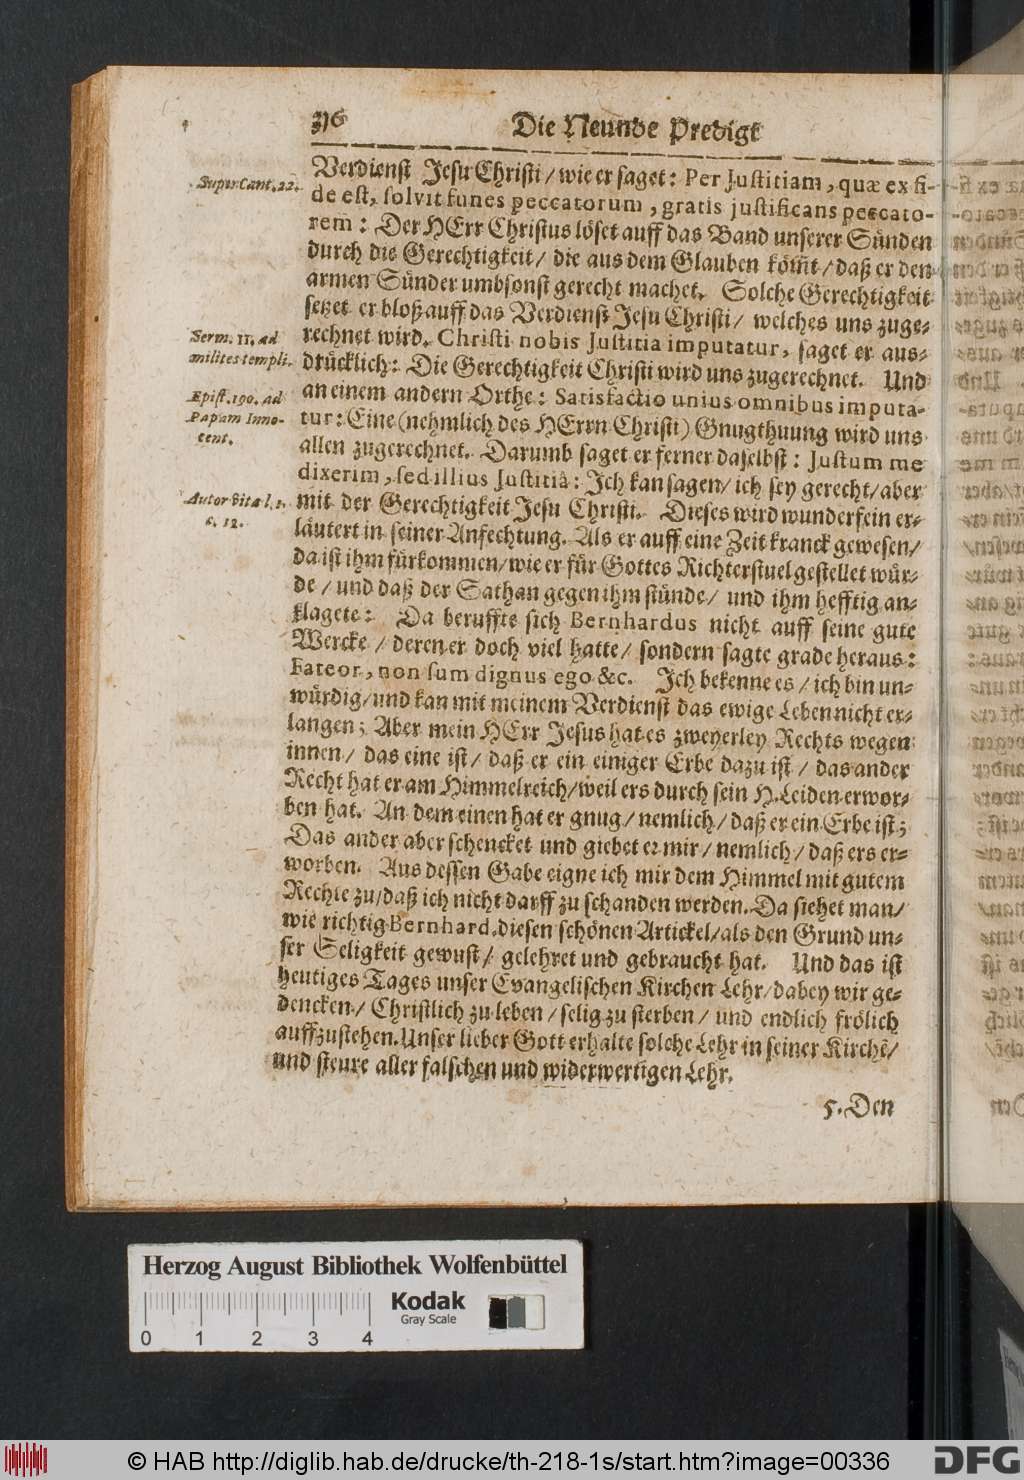 316 Die Neunde Predigt
Verdienst Jesu Christi / wie er saget: Per Justitiam, quæ ex fi-
Super Cant. 22.
de est, solvit funes peccatorum, gratis justificans peccato-
rem: Der HErr Christus löset auff das Band unserer Sünden
durch die Gerechtigkeit / die aus dem Glauben köm̃t / daß er den
armen Sünder umbsonst gerecht machet. Solche Gerechtigkeit
setzet er bloß auff das Verdienst Jesu Christi / welches uns zuge-
Serm. 11. ad
milites templi.
rechnet wird. Christi nobis Justitia imputatur, saget er aus-
drücklich: Die Gerechtigkeit Christi wird uns zugerechnet. Und
Epist. 190. ad
Papam Inno-
cent.
an einem andern Orthe: Satisfactio unius omnibus imputa-
tur: Eine (nehmlich des HErrn Christi) Gnugthuung wird uns
allen zugerechnet. Darumb saget er ferner daselbst: Justum me
dixerim, sed illius Justitiâ: Ich kan sagen / ich sey gerecht / aber
Autor vitæ l. 1.
c. 12.
mit der Gerechtigkeit Jesu Christi. Dieses wird wunderfein er-
läutert in seiner Anfechtung. Als er auff eine Zeit kranck gewesen /
da ist ihm fürkommen / wie er für Gottes Richterstuel gestellet wür-
de / und daß der Sathan gegen ihm stünde / und ihm hefftig an-
klagete: Da beruffte sich Bernhardus nicht auff seine gute
Wercke / deren er doch viel hatte / sondern sagte grade heraus:
Fateor, non sum dignus ego &c. Ich bekenne es / ich bin un-
würdig / und kan mit meinem Verdienst das ewige Leben nicht er-
langen; Aber mein HErr Jesus hat es zweyerley Rechts wegen
innen / das eine ist / daß er ein einiger Erbe dazu ist / das ander
Recht hat er am Himmelreich / weil ers durch sein H. Leiden erwor-
ben hat. An dem einen hat er gnug / nemlich / daß er ein Erbe ist;
Das ander aber schencket und giebet er mir / nemlich / daß ers er-
worben. Aus dessen Gabe eigne ich mir dem Himmel mit gutem
Rechte zu / daß ich nicht darff zu schanden werden. Da siehet man /
wie richtig Bernhard. diesen schönen Artickel / als den Grund un-
ser Seligkeit gewust / gelehret und gebraucht hat. Und das ist
heutiges Tages unser Evangelischen Kirchen Lehr / dabey wir ge-
dencken / Christlich zu leben / selig zu sterben / und endlich frölich
auffzustehen. Unser lieber Gott erhalte solche Lehr in seiner Kirchẽ /
und steure aller falschen und widerwertigen Lehr.
5. Den
Herzog August Bibliothek Wolfenbüttel
Kodak
Gray Scale
0 1 2 3 4
© HAB http://diglib.hab.de/drucke/th-218-1s/start.htm?image=00336
DFG